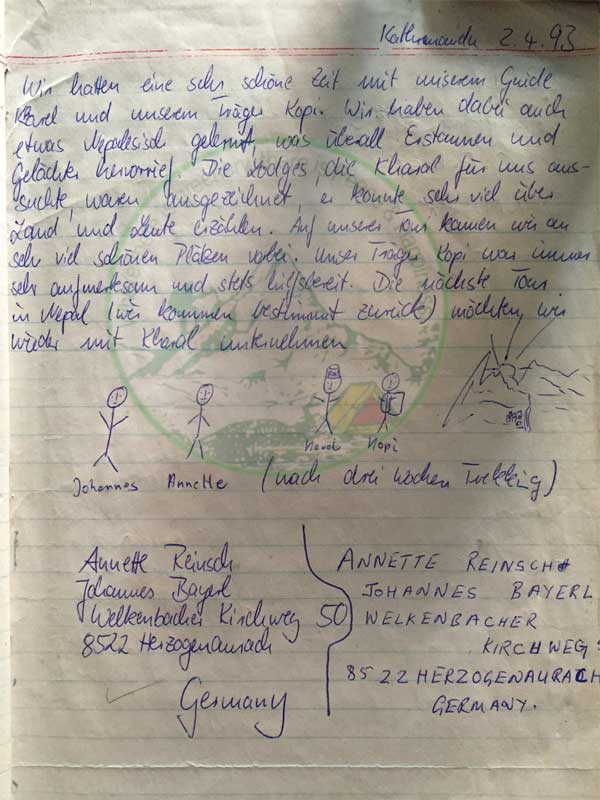 Kathmandu 2.4.93
Wir hatten eine sehr schöne Zeit mit unserem Guide
Kharel und unserem Träger Kopi. Wir haben dabei auch
etwas Nepalesisch gelernt, was überall Erstaunen und
Gelächter hervorrief. Die Lodges, die Kharal für uns aus-
suchte, waren ausgezeichnet, er konnte sehr viel über
Land und Leute erzählen. Auf unserer Tour kamen wir an
sehr viel schönen Plätzen vorbei. Unser Träger Kopi war immer
sehr aufmerksam und stets hilfsbereit. Die nächste Tour
in Nepal (wir kommen bestimmt zurück) möchten wir
wieder mit Kharal unternehmen
Johannes Annette Kopi
(nach drei Wochen Trekking)
Annette Reinsch
Johannes Bayerl
Welkenbacher Kirchweg 50
8522 Herzogenaurach
Germany
ANNETTE REINSCH
JOHANNES BAYERL
WELKENBACHER
KIRCHWEG
8522 HERZOGENAURACH
GERMANY.